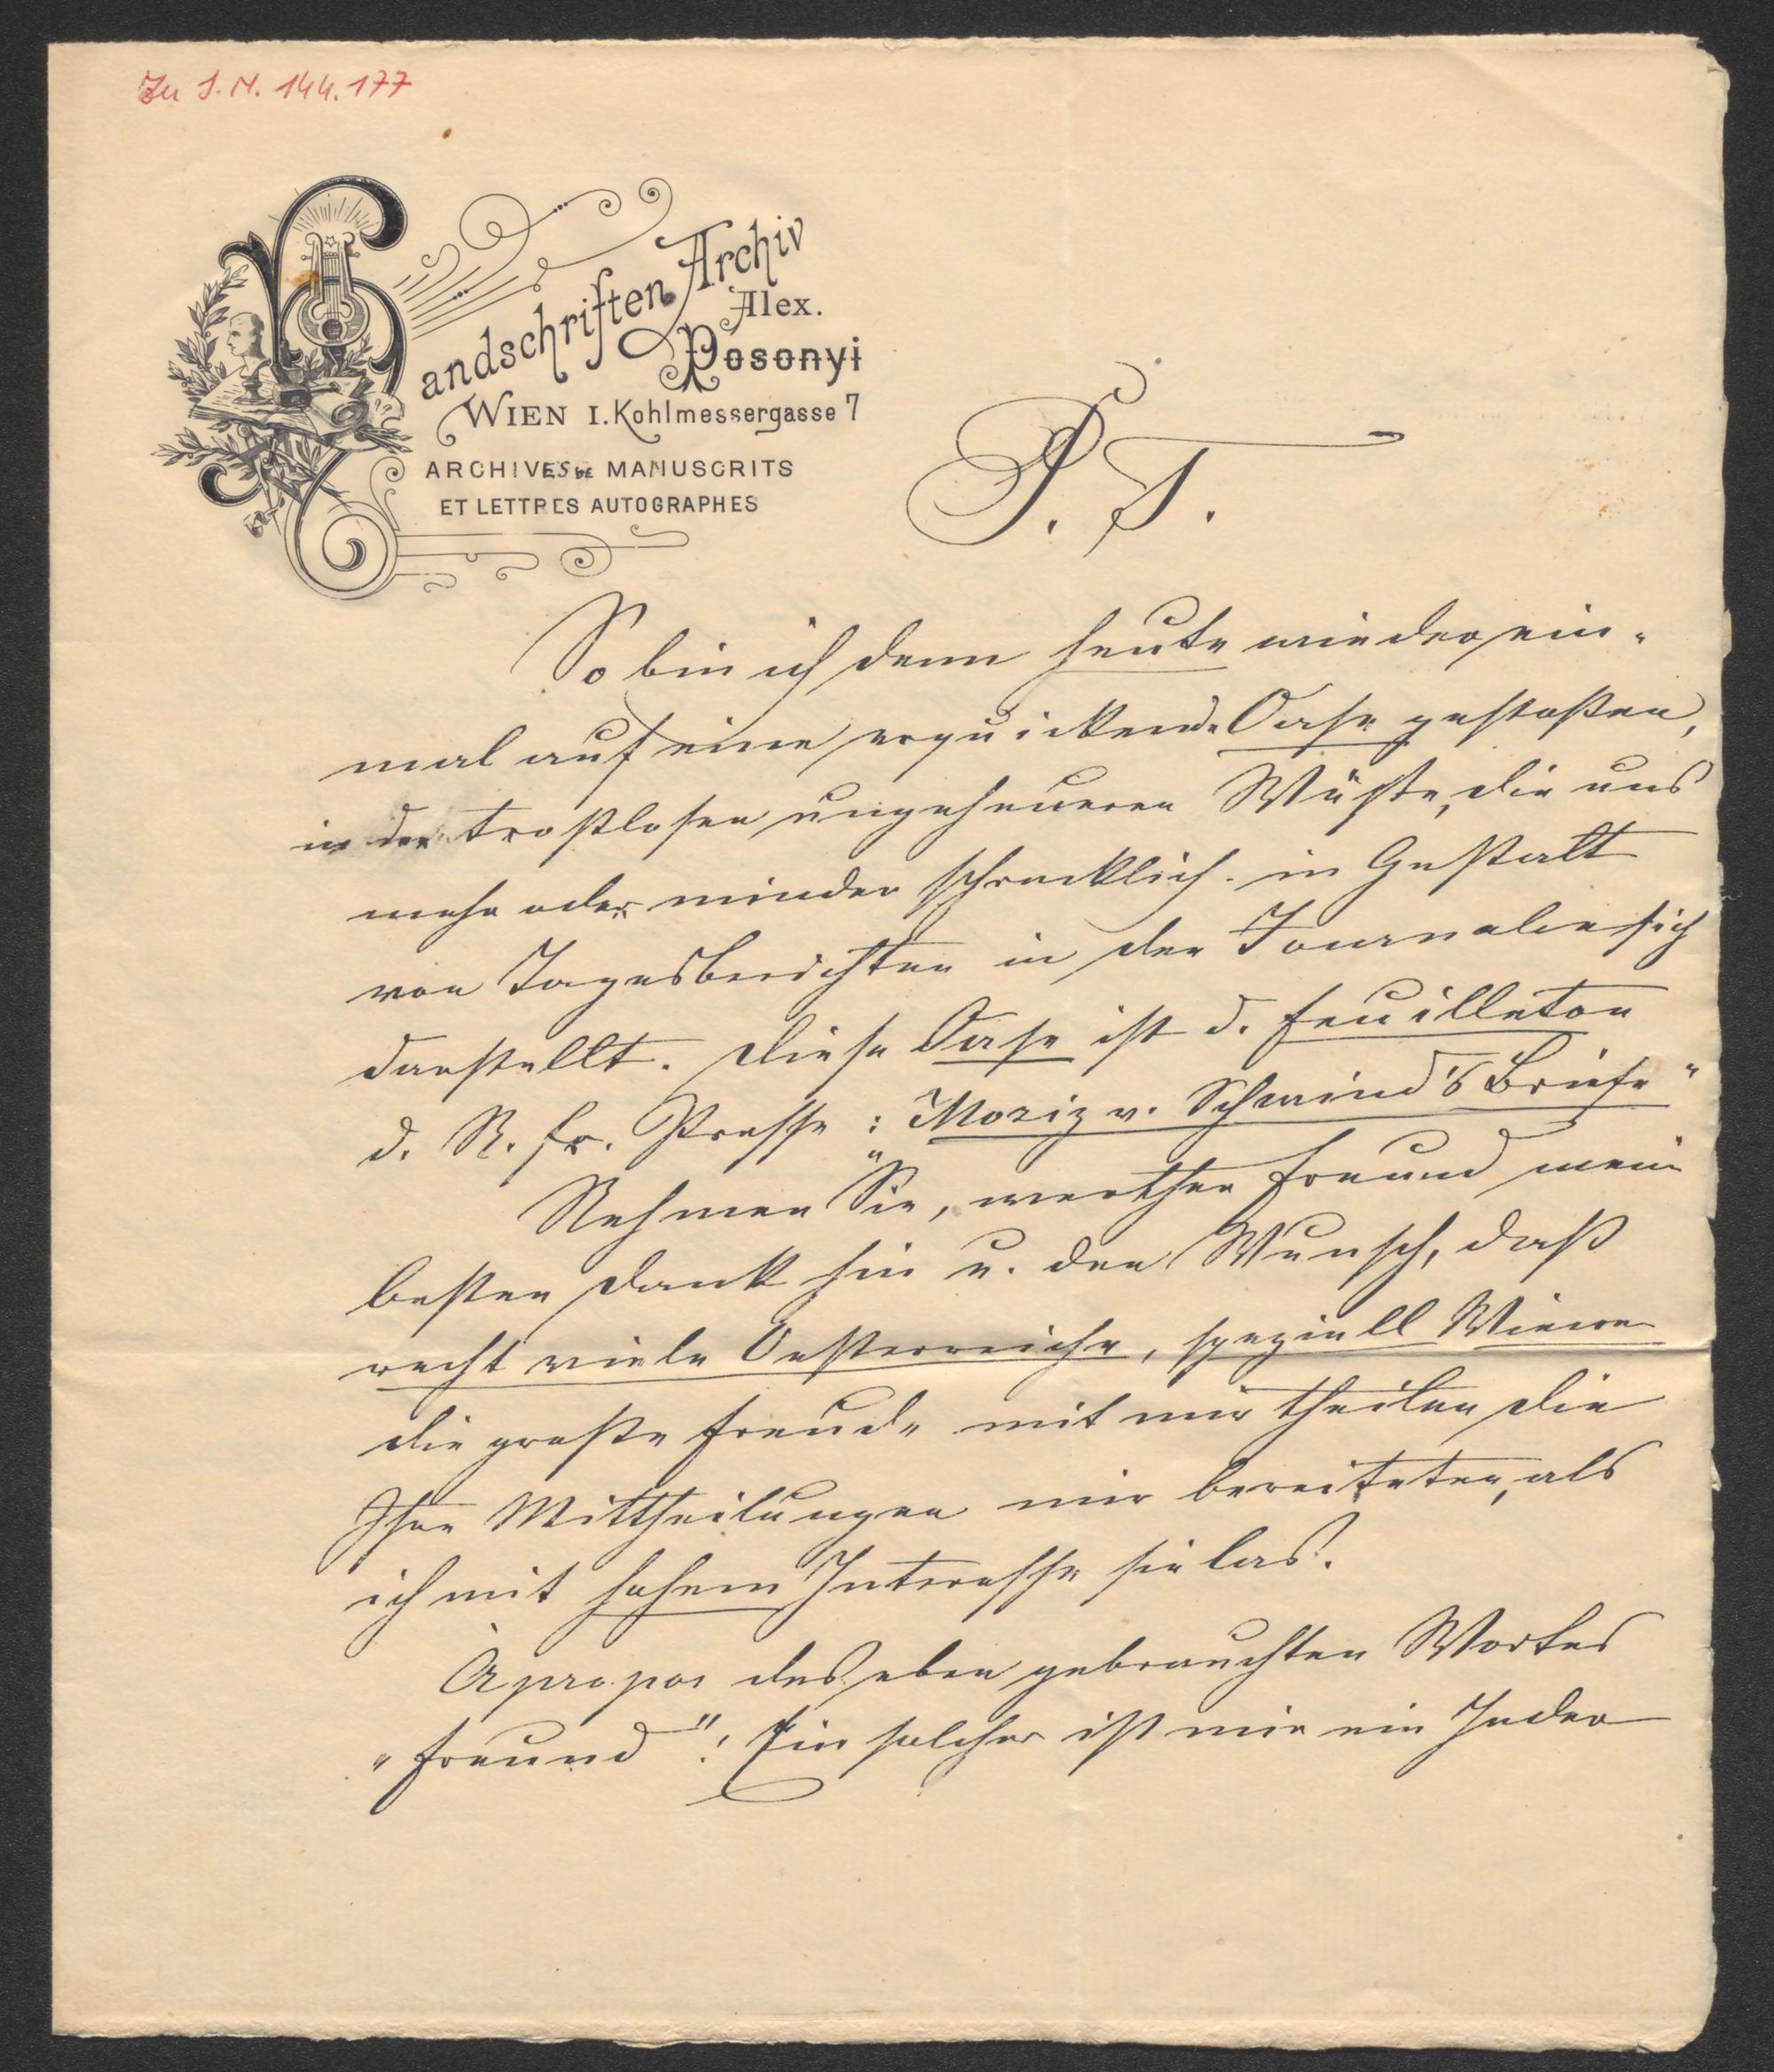 Zu I.N. 144.177
Handschriften Archiv
Alex.
Posonyi
WIEN I. Kohlmessergasse 7
ARCHIVES DE MANUSCRITS
ET LETTRES AUTOGRAPHES
P. T.
So bin ich denn heute wieder ein-
mal auf eine erquickende Oase gestoßen,
in der trostlosen ungeheueren Wüste, die uns
mehr oder minder schrecklich in Gestalt
von Tagesberichten in den Journalen sich
darstellt. Diese Oase ist d. Feuilleton
d. N. fr. Presse: „Moriz v. Schwind's Briefe"
Nehmen Sie, werther Freund mein
besten Dank hin u. den Wunsch, daß
recht viele Oesterreicher, speziell Wiener
die große Freude mit mir theilen die
Ihre Mittheilungen mir bereiteten, als
ich mit hohem Interesse sie las.
Àpropos des eben gebrauchten Wortes
„Freund": Ein solcher ist mir ein Jeder